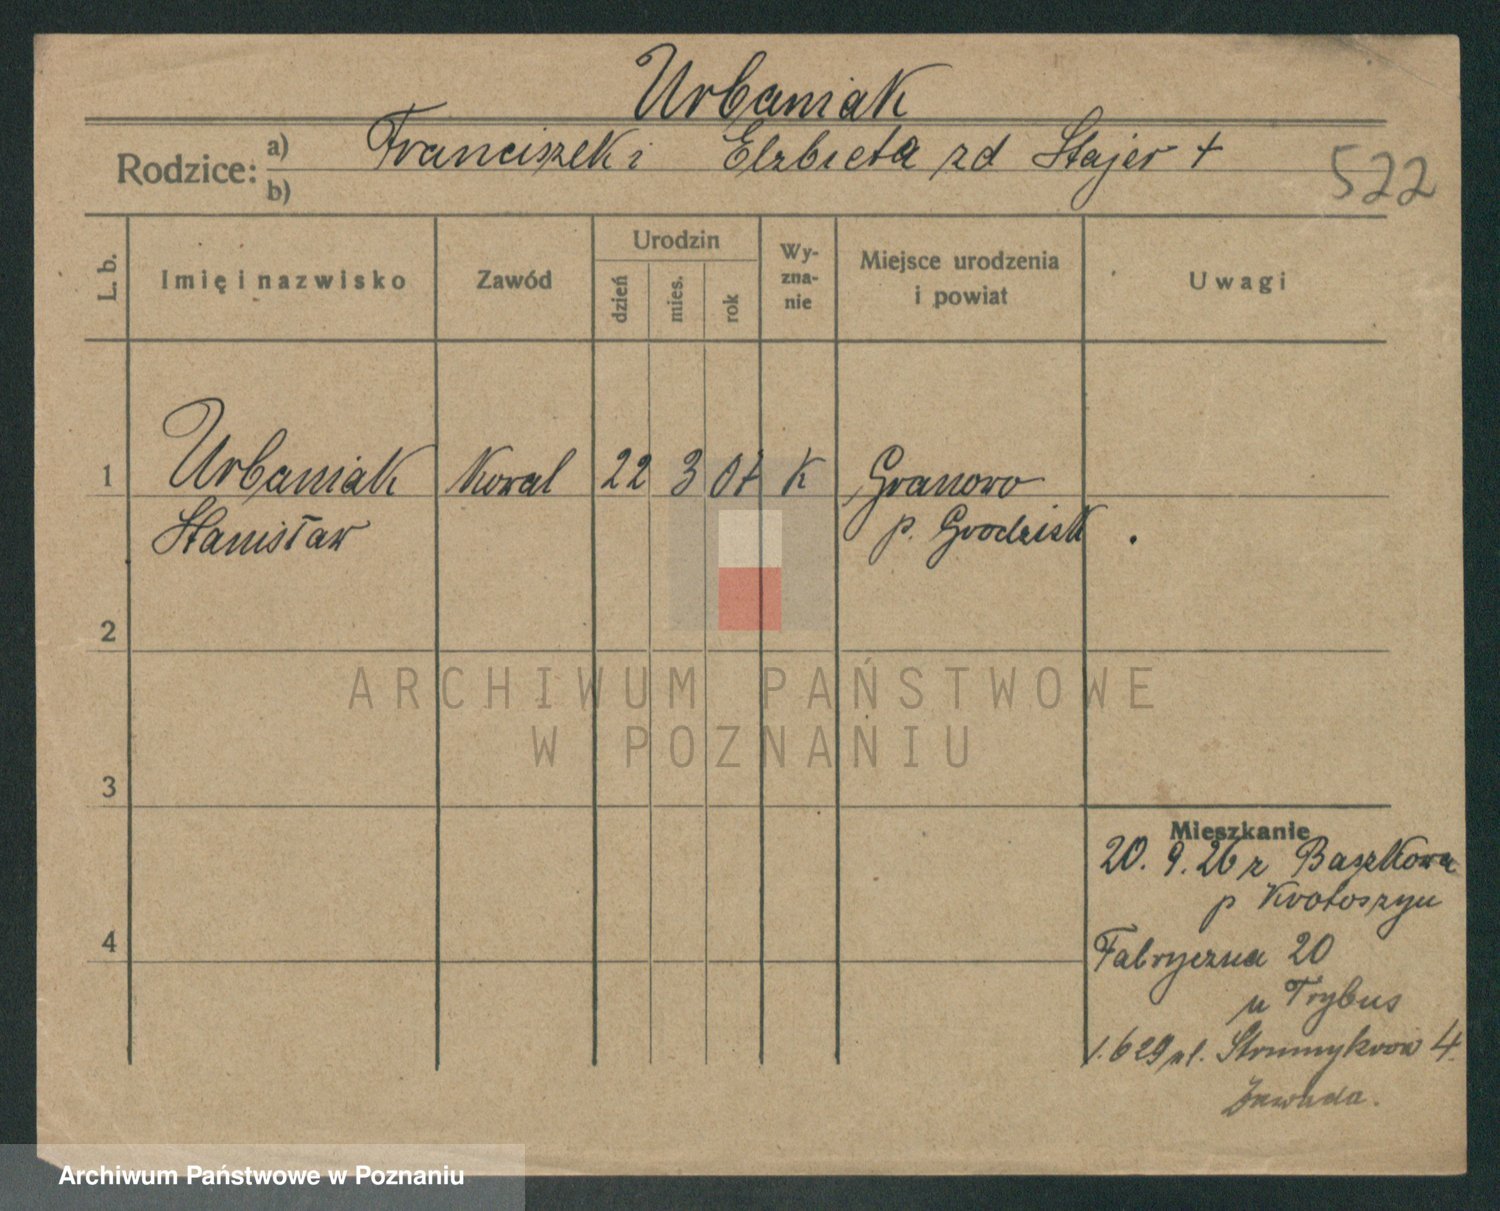 Urbaniak
Rodzice: a) Franciszek i Elzbieta zd Stajer +
b)
522
L. b.
Imię i nazwisko
Zawód
Urodzin
dzień
mies.
rok
Wy-
zna-
nie
Miejsce urodzenia
i powiat
Uwagi
1 Urbaniak Kowal 22 3 07 K Granowo
Stanisław p. Grodzisk .
2
ARCHIWUM PAŃSTWOWE
W POZNANIU
3
Mieszkanie
20. 9. 26 z Baszkowa
p Krotoszyn
4
Fabryczna 20
u Trybus
1.6 29 ul. Strumykowa 4.
Zawada.
Archiwum Państwowe w Poznaniu